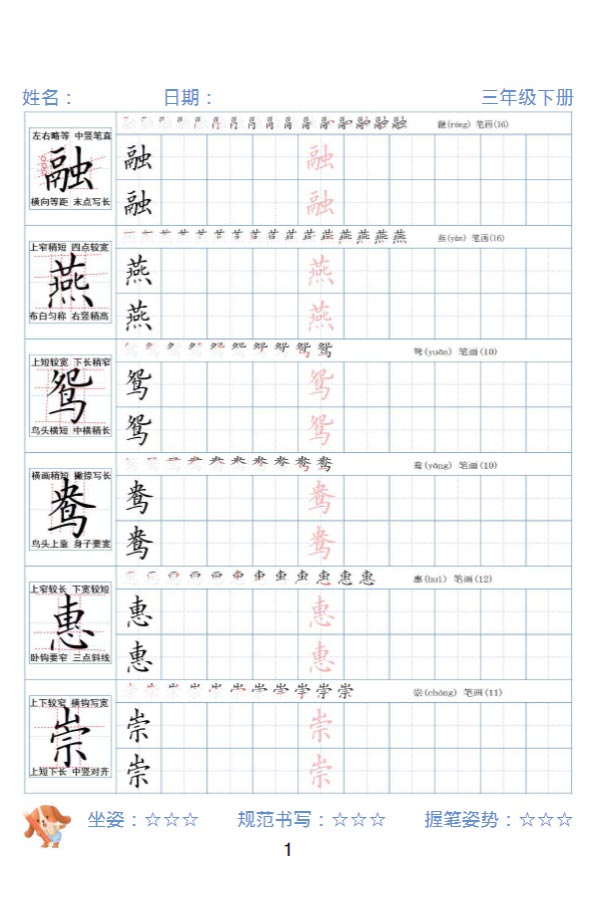 姓名： 日期： 三年级下册
融(róng) 笔画(16)
左右略等 中竖笔直
融
横向等距 末点写长
融 融
融 融
燕(yàn) 笔画(16)
上窄稍短 四点较宽
燕
布白匀称 右竖稍高
燕 燕
燕 燕
鸳(yuān) 笔画(10)
上短较宽 下长稍窄
鸳
鸟头横短 中横稍长
鸳 鸳
鸳 鸳
鸯(yāng) 笔画(10)
横画稍短 撇捺写长
鸯
鸟头上靠 身子要宽
鸯 鸯
鸯 鸯
惠(huì) 笔画(12)
上窄较长 下宽较短
惠
卧钩要窄 三点斜线
惠 惠
惠 惠
崇(chóng) 笔画(11)
上下较窄 横钩写宽
崇
上短下长 中竖对齐
崇 崇
崇 崇
坐姿：☆☆☆ 规范书写：☆☆☆ 握笔姿势：☆☆☆
1